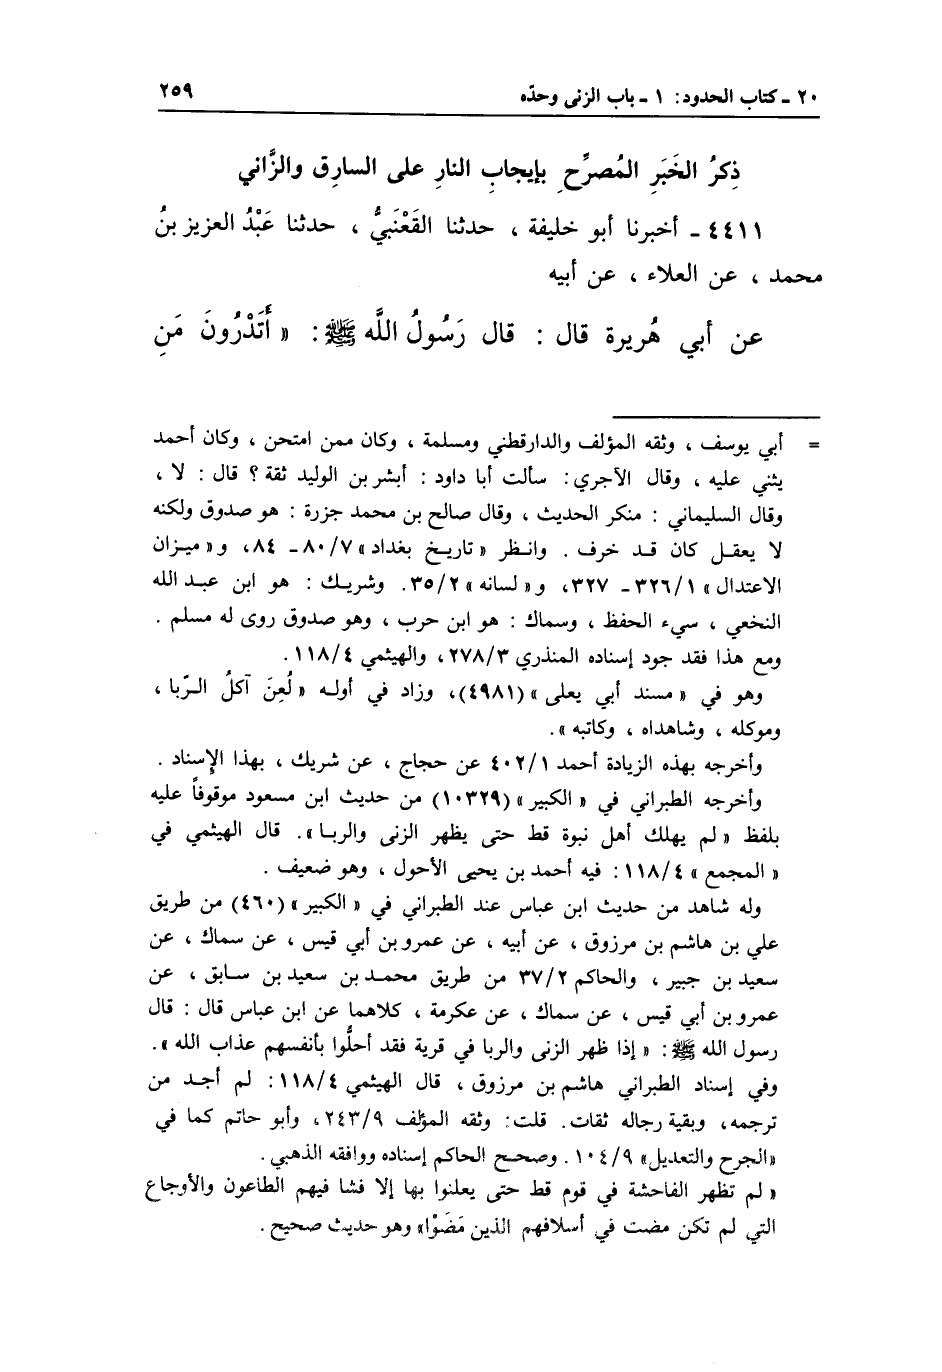 ٢٠ - كتاب الحدود: ١ - باب الزنى وحدّه ٢٥٩
ذِكرُ الخَبَرِ المُصرِّحِ بإيجابِ النارِ على السارِقِ والزَّاني
٤٤١١ - أخبرنا أبو خليفة ، حدثنا القَعْنَبيُّ ، حدثنا عَبْدُ العزيز بنُ
محمد ، عن العلاء ، عن أبيه
عن أبي هُريرة قال : قال رَسُولُ اللَّه ﷺ: « أَتَدْرُونَ مَنِ
= أبي يوسف ، وثقه المؤلف والدارقطني ومسلمة ، وكان ممن امتحن ، وكان أحمد
يثني عليه ، وقال الآجري: سألت أبا داود : أبشر بن الوليد ثقة ؟ قال : لا ،
وقال السليماني : منكر الحديث ، وقال صالح بن محمد جزرة : هو صدوق ولكنه
لا يعقل كان قد خرف . وانظر « تاريخ بغداد » ٨٠/٧ - ٨٤، و « ميزان
الاعتدال » ٣٢٦/١ - ٣٢٧، و « لسانه » ٣٥/٢. وشريك : هو ابن عبد الله
النخعي ، سيء الحفظ ، وسماك : هو ابن حرب ، وهو صدوق روى له مسلم .
ومع هذا فقد جود إسناده المنذري ٢٧٨/٣، والهيثمي ١١٨/٤.
وهو في « مسند أبي يعلى » (٤٩٨١)، وزاد في أوله « لُعِنَ آكلُ الرّبا ،
وموكله ، وشاهداه ، وكاتبه ».
وأخرجه بهذه الزيادة أحمد ٤٠٢/١ عن حجاج ، عن شريك ، بهذا الإسناد .
وأخرجه الطبراني في « الكبير » (١٠٣٢٩) من حديث ابن مسعود موقوفاً عليه
بلفظ « لم يهلك أهل نبوة قط حتى يظهر الزنى والربا ». قال الهيثمي في
« المجمع » ١١٨/٤: فيه أحمد بن يحيى الأحول ، وهو ضعيف .
وله شاهد من حديث ابن عباس عند الطبراني في « الكبير » (٤٦٠) من طريق
علي بن هاشم بن مرزوق ، عن أبيه ، عن عمرو بن أبي قيس ، عن سماك ، عن
سعيد بن جبير ، والحاكم ٣٧/٢ من طريق محمد بن سعيد بن سابق ، عن
عمرو بن أبي قيس ، عن سماك ، عن عكرمة ، كلاهما عن ابن عباس قال : قال
رسول الله ﷺ: « إذا ظهر الزنى والربا في قرية فقد أحلُّوا بأنفسهم عذاب الله ».
وفي إسناد الطبراني هاشم بن مرزوق ، قال الهيثمي ١١٨/٤: لم أجد من
ترجمه، وبقية رجاله ثقات. قلت: وثقه المؤلف ٢٤٣/٩، وأبو حاتم كما في
«الجرح والتعديل» ١٠٤/٩. وصحح الحاكم إسناده ووافقه الذهبي .
« لم تظهر الفاحشة في قوم قط حتى يعلنوا بها إلا فشا فيهم الطاعون والأوجاع
التي لم تكن مضت في أسلافهم الذين مَضَوْا» وهو حديث صحيح .